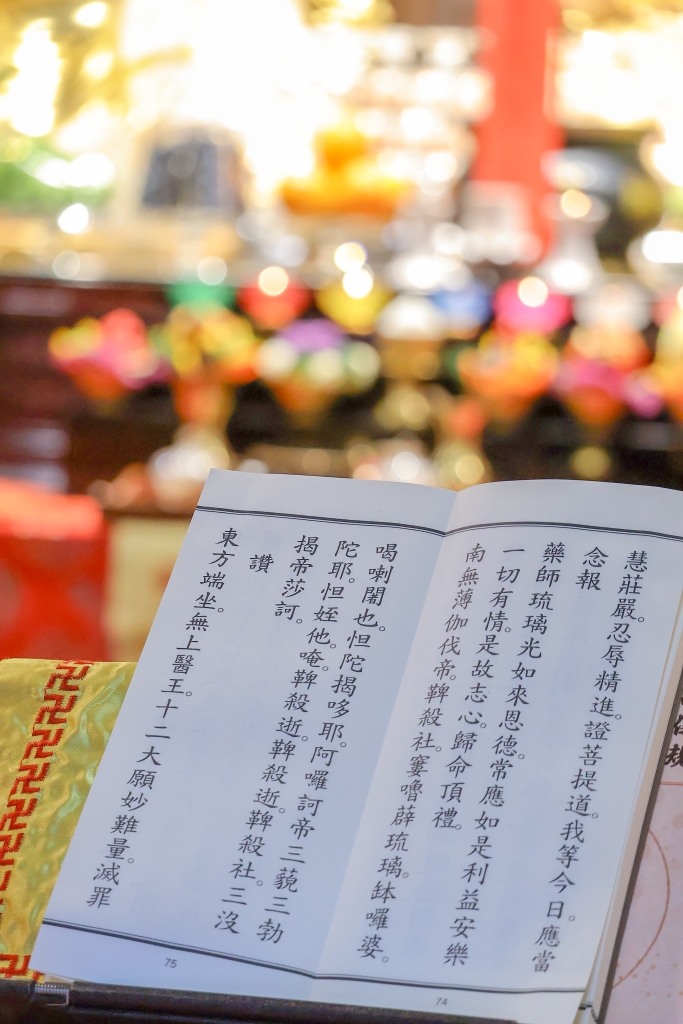 慧莊嚴。忍辱精進。證菩提道。我等今日。應當
念報
藥師琉璃光如來恩德。常應如是利益安樂
一切有情。是故志心。歸命頂禮。
南無薄伽伐帝。鞞殺社。窶嚕薜琉璃。鉢囉婆。
74
喝喇闍也。怛陀揭哆耶。阿囉訶帝三藐三勃
陀耶。怛姪他。唵。鞞殺逝。鞞殺逝。鞞殺社。三沒
揭帝莎訶。
讚
東方端坐。無上醫王。十二大願妙難量。滅罪
75